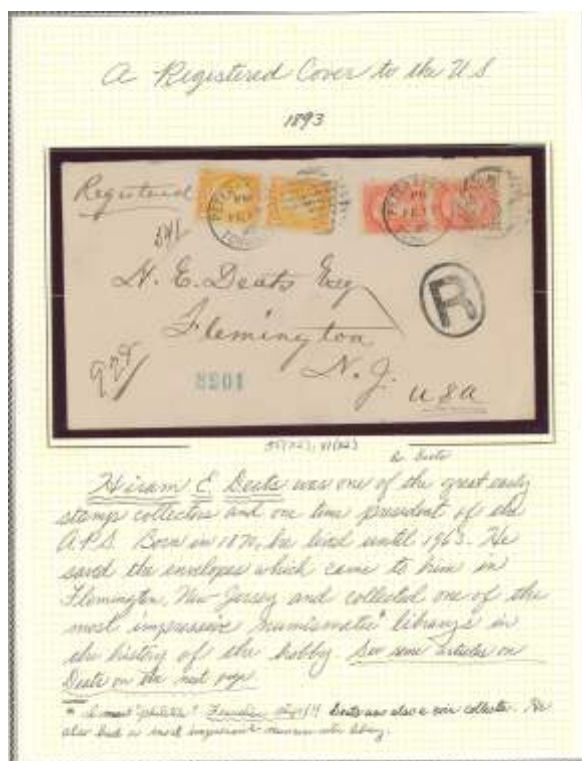 A Registered Cover to the US
1893
Registered
H. E. Deats Esq
Flemington
N. J.
USA
R
928
3201
Hiram E. Deats was one of the great early
stamp collectors and one time president of the
A.P.S. Born in 1870, he lived until 1963. He
saved the envelopes which came to him in
Flemington, New Jersey and collected one of the
most impressive "numismatic" library's in
the history of the hobby. See some articles on
Deats on the next page.
* I meant "philatelic"! Freudian slip!!! Deats was also a coin collector. He
also had a most important numismatic library.